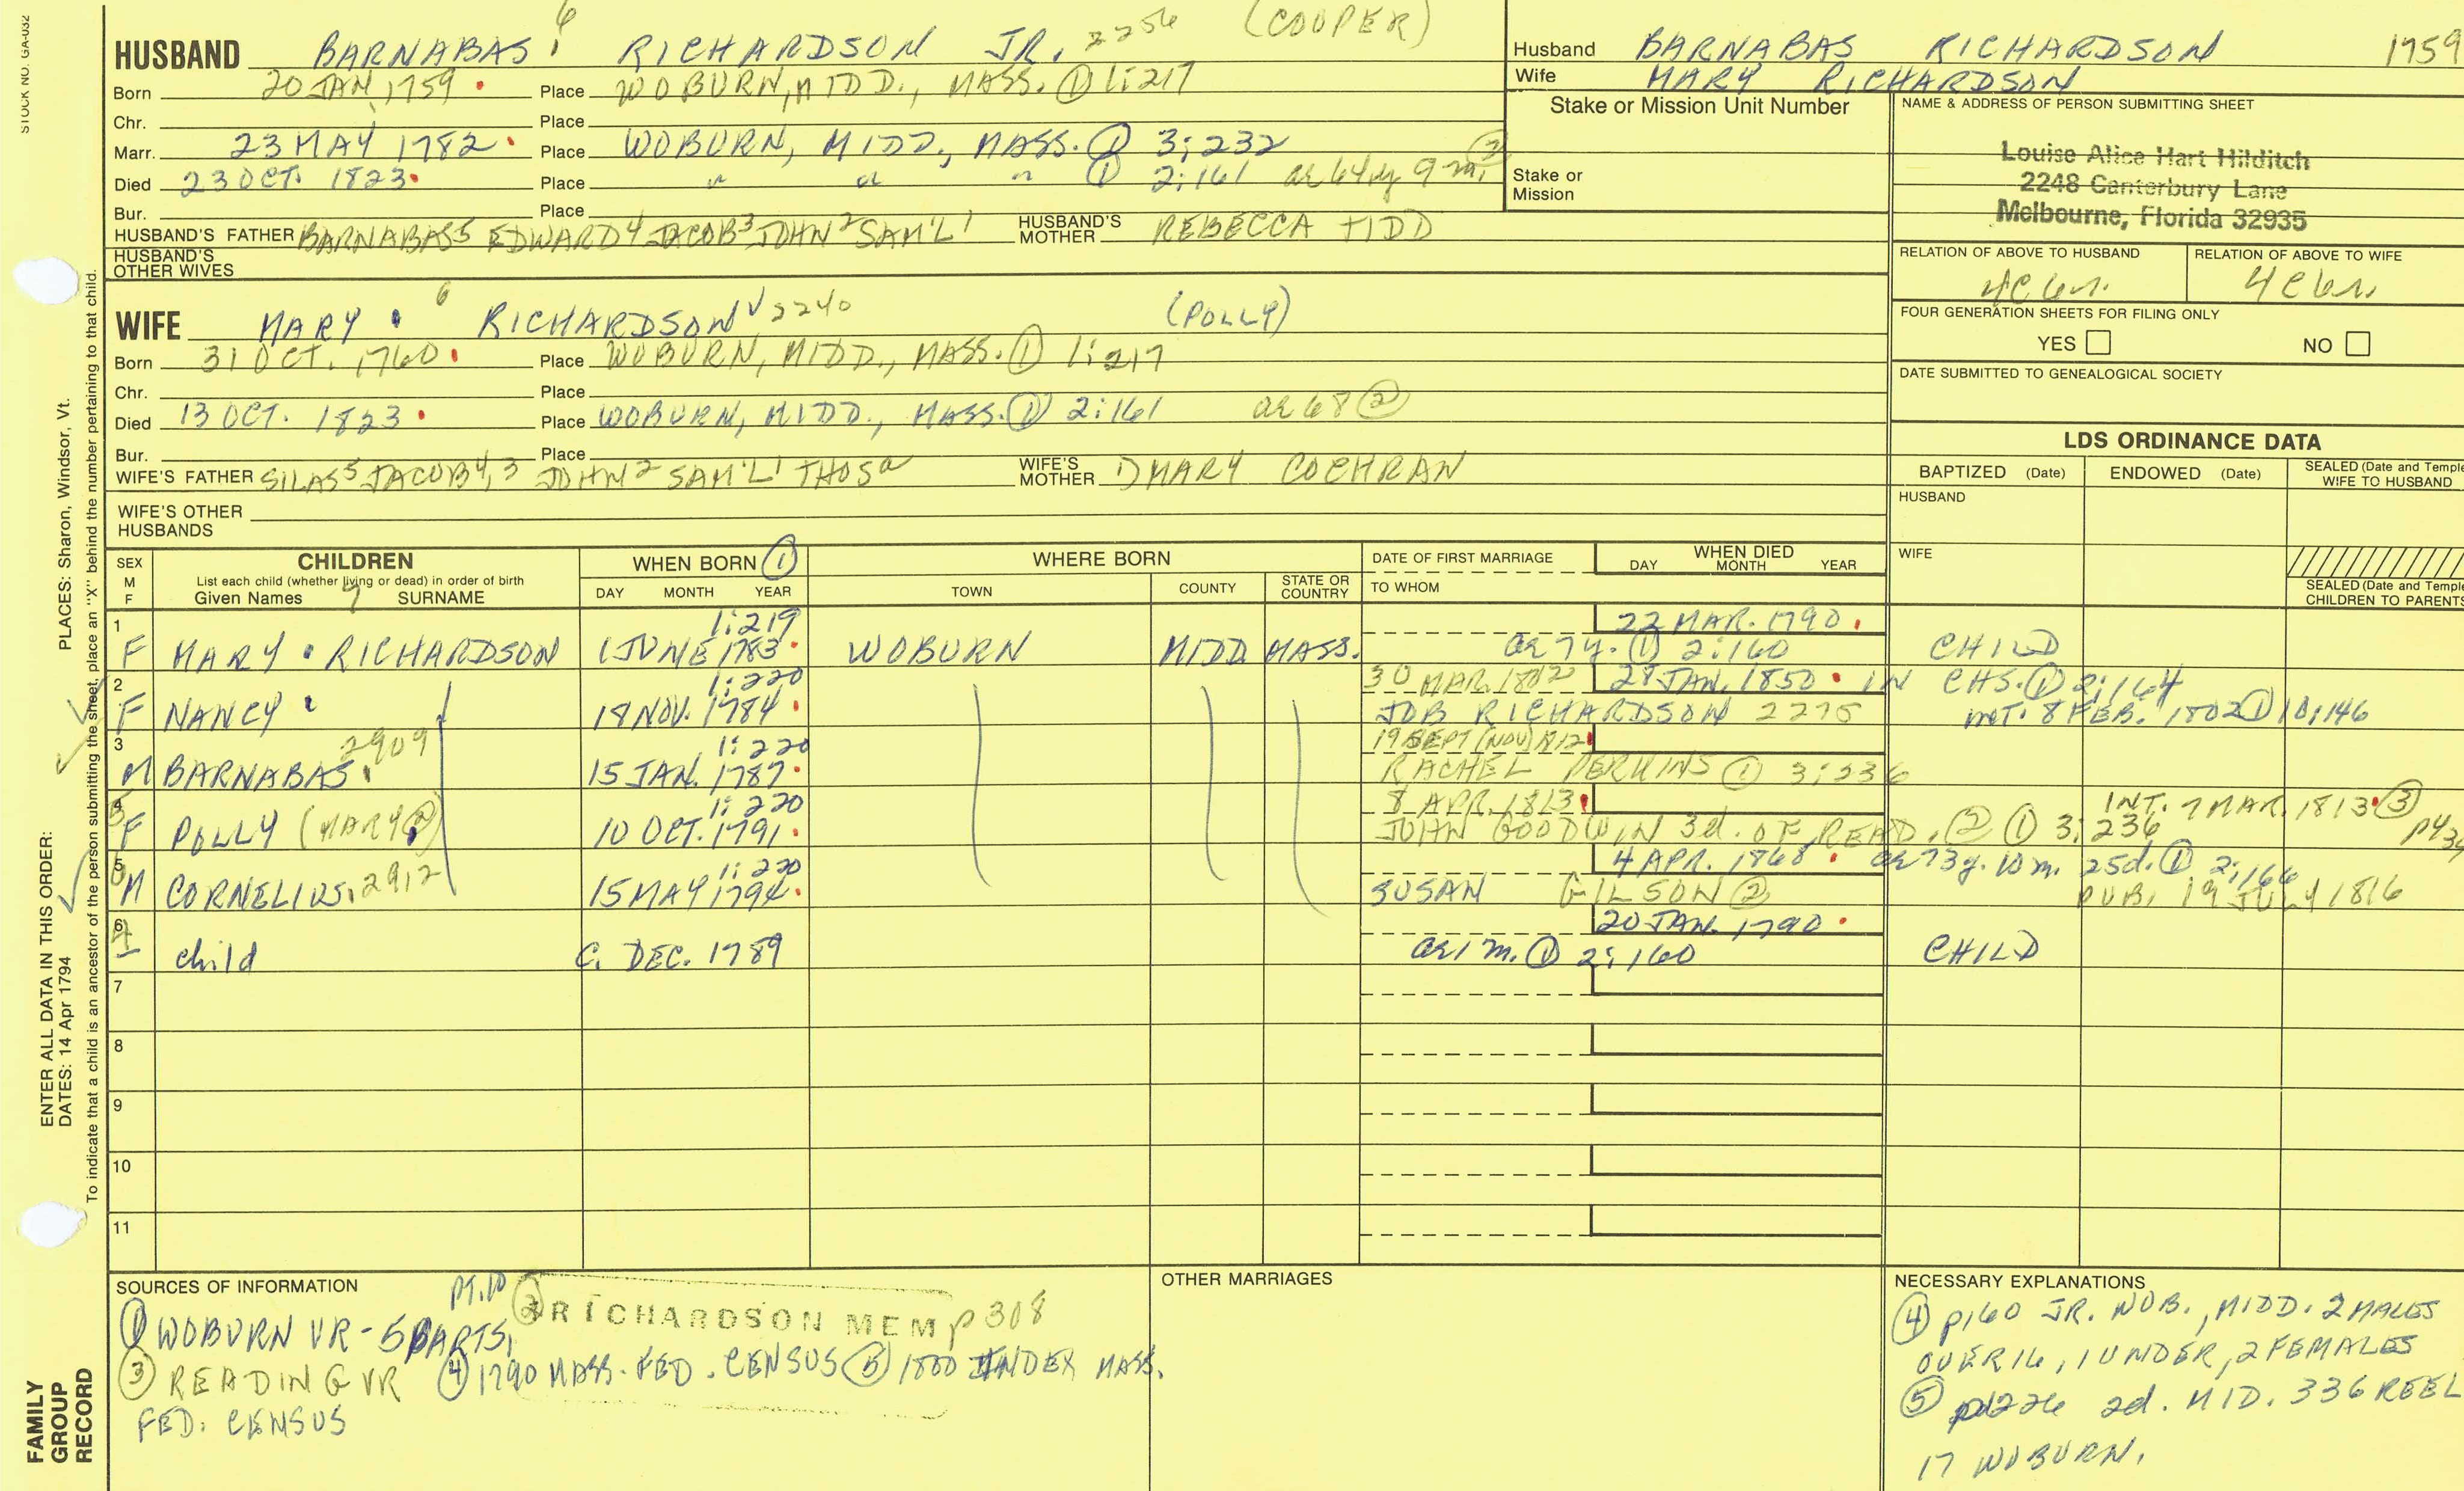 STOCK NO. GA-032
HUSBAND BARNABAS 6 RICHARDSON JR. 2256 (COOPER)
Born 20 JAN. 1759 Place WOBURN, MIDD., MASS. ① 1:217
Chr. Place
Marr. 23 MAY 1782 Place WOBURN, MIDD., MASS. ① 3:232
Died 23 OCT. 1823 Place " " " ① 2:161 ae 64y 9 m. ②
Bur. Place
HUSBAND'S FATHER BARNABAS5 EDWARD4 JACOB3 JOHN2 SAM'L1 HUSBAND'S MOTHER REBECCA TIDD
HUSBAND'S OTHER WIVES
WIFE MARY 6 RICHARDSON √ 2240 (POLLY)
Born 31 OCT. 1760 Place WOBURN, MIDD., MASS. ① 1:217
Chr. Place
Died 13 OCT. 1823 Place WOBURN, MIDD., MASS. ① 2:161 ae 68 ②
Bur. Place
WIFE'S FATHER SILAS5 JACOB4,3 JOHN2 SAM'L1 THOSa WIFE'S MOTHER 1) MARY COCHRAN
WIFE'S OTHER HUSBANDS
Husband BARNABAS RICHARDSON 1759
Wife MARY RICHARDSON
Stake or Mission Unit Number
Stake or Mission
NAME & ADDRESS OF PERSON SUBMITTING SHEET
Louise Alice Hart Hilditch
2248 Canterbury Lane
Melbourne, Florida 32935
RELATION OF ABOVE TO HUSBAND RELATION OF ABOVE TO WIFE
4C 6r. 4C 6r.
FOUR GENERATION SHEETS FOR FILING ONLY
YES NO
DATE SUBMITTED TO GENEALOGICAL SOCIETY
LDS ORDINANCE DATA
BAPTIZED (Date) ENDOWED (Date) SEALED (Date and Temple) WIFE TO HUSBAND
HUSBAND
WIFE
SEALED (Date and Temple) CHILDREN TO PARENTS
SEX M F CHILDREN WHEN BORN ① WHERE BORN DATE OF FIRST MARRIAGE WHEN DIED
List each child (whether living or dead) in order of birth DAY MONTH YEAR
Given Names 7 SURNAME DAY MONTH YEAR TOWN COUNTY STATE OR COUNTRY TO WHOM
1 1:219 22 MAR. 1790
F MARY RICHARDSON 1 JUNE 1783 WOBURN MIDD. MASS. ae 7y. ① 2:160 CHILD
2 1:220 30 MAR. 1802 28 JAN. 1850 IN CHS. ① 2:164
F NANCY 18 NOV. 1784 JOB RICHARDSON 2275 int. 8 FEB. 1802 ① 10:146
3 2909 1:220 19 SEPT (NOV) 1812
M BARNABAS 15 JAN. 1787 RACHEL PERKINS ① 3:236
4 5 1:220 8 APR. 1813 INT. 7 MAR. 1813 ③
F POLLY (MARY ②) 10 OCT. 1791 JOHN GOODWIN 3d. OF READ. ② ① 3:236
5 6 1:220 4 APR. 1868 ae 73y. 10 m. 25d. ① 2:166
M CORNELIUS 2912 15 MAY 1794 SUSAN GILSON ② PUB. 19 JULY 1816
6 4 20 JAN. 1790
- child C. DEC. 1789 ae 1 m. ① 2:160 CHILD
7
8
9
10
11
SOURCES OF INFORMATION
PT. 10
① WOBURN VR - 5 PARTS, ② RICHARDSON MEM p 308
③ READING VR ④ 1790 MASS. FED. CENSUS ⑤ 1800 INDEX MASS.
FED. CENSUS
OTHER MARRIAGES
NECESSARY EXPLANATIONS
④ p160 JR. WOB., MIDD. 2 MALES
OVER 16, 1 UNDER, 2 FEMALES
⑤ 2d. MID. 336 REEL
17 WOBURN.
ENTER ALL DATA IN THIS ORDER:
DATES: 14 Apr 1794 PLACES: Sharon, Windsor, Vt.
To indicate that a child is an ancestor of the person submitting the sheet, place an "X" behind the number pertaining to that child.
FAMILY
GROUP
RECORD